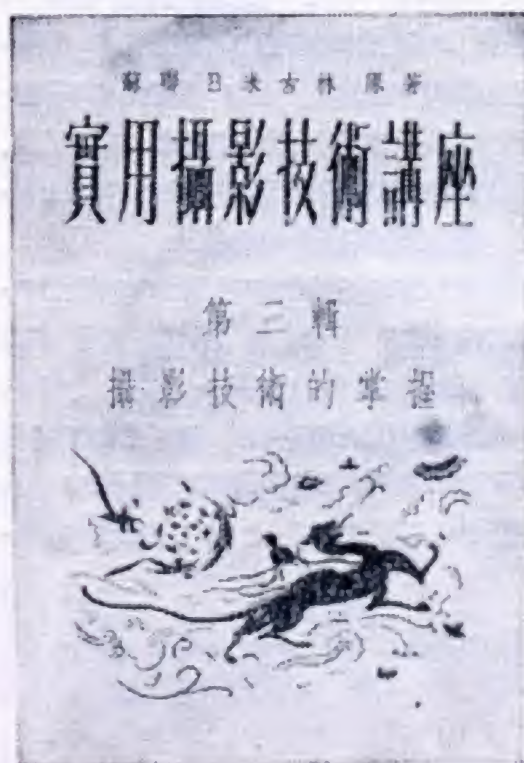 蘇聯 日米古林 原著
實用攝影技術講座
第三輯
攝影技術的掌握